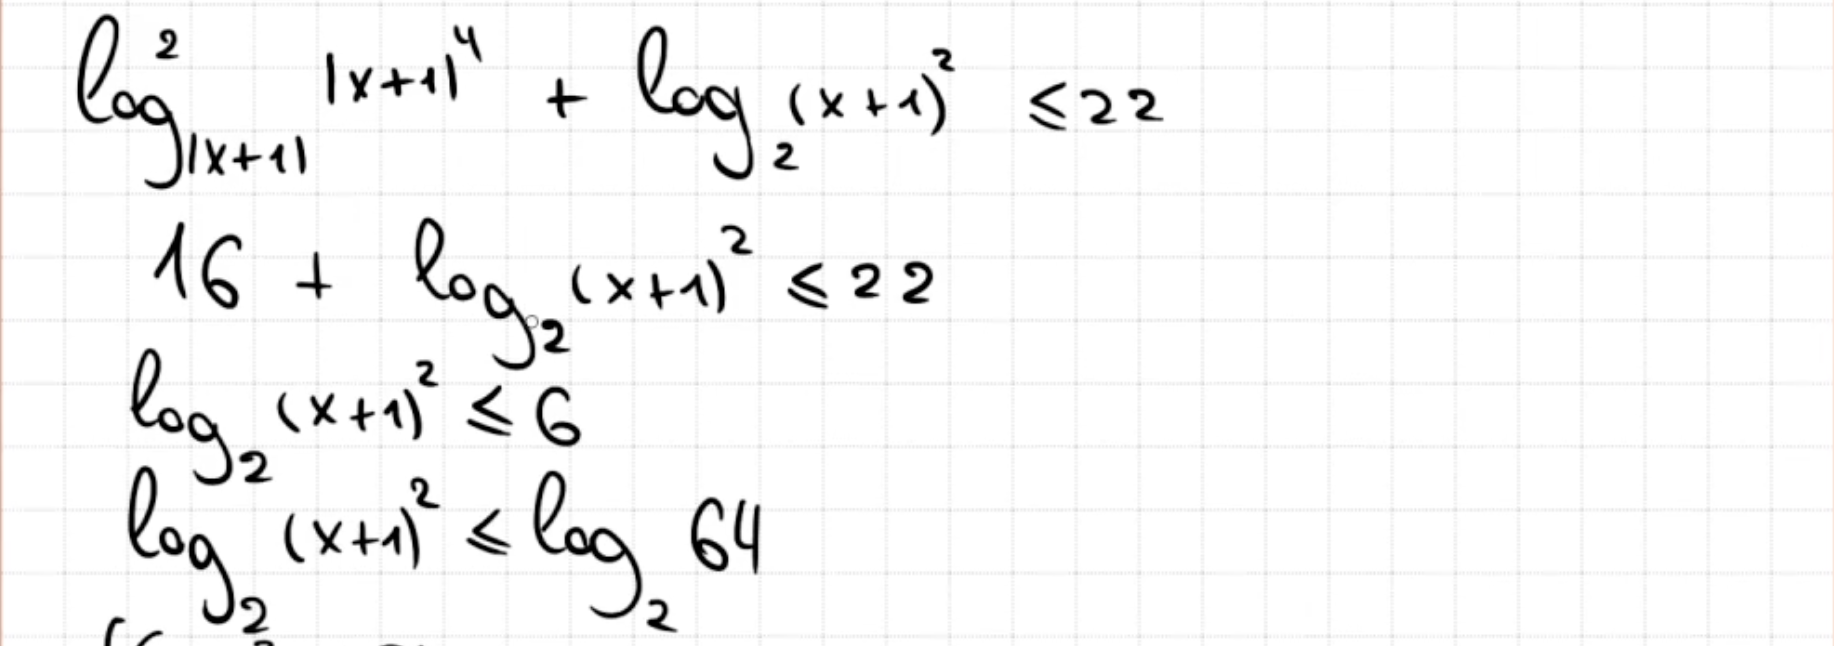 log²_|x+1| |x+1|⁴ + log₂ (x+1)² ≤ 22
16 + log₂ (x+1)² ≤ 22
log₂ (x+1)² ≤ 6
log₂ (x+1)² ≤ log₂ 64